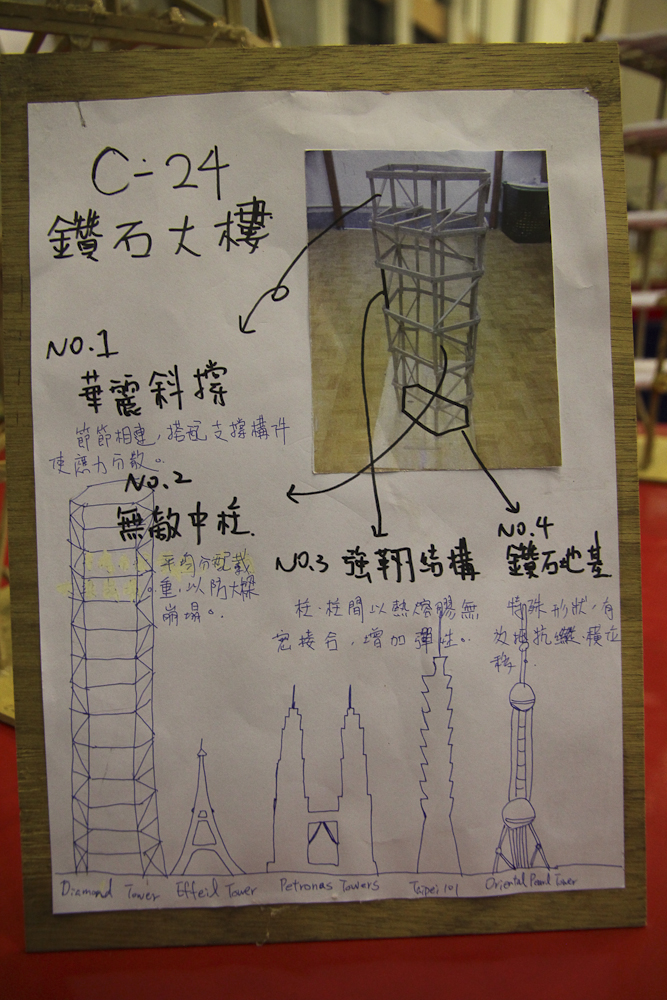 C-24
鑽石大樓
NO.1
華麗斜撐
節節相連,搭配支撐構件
使應力分散。
NO.2
無敵中柱.
平均分配載
重,以防大樑
崩塌。
NO.3 強韌結構
柱.柱間以熱熔膠無
接合,增加彈性。
NO.4
鑽石地基
特殊形狀,有
效抵抗縱.橫位
移.
Diamond Tower
Effeil Tower
Petronas Towers
Taipei 101
Oriental Pearl Tower